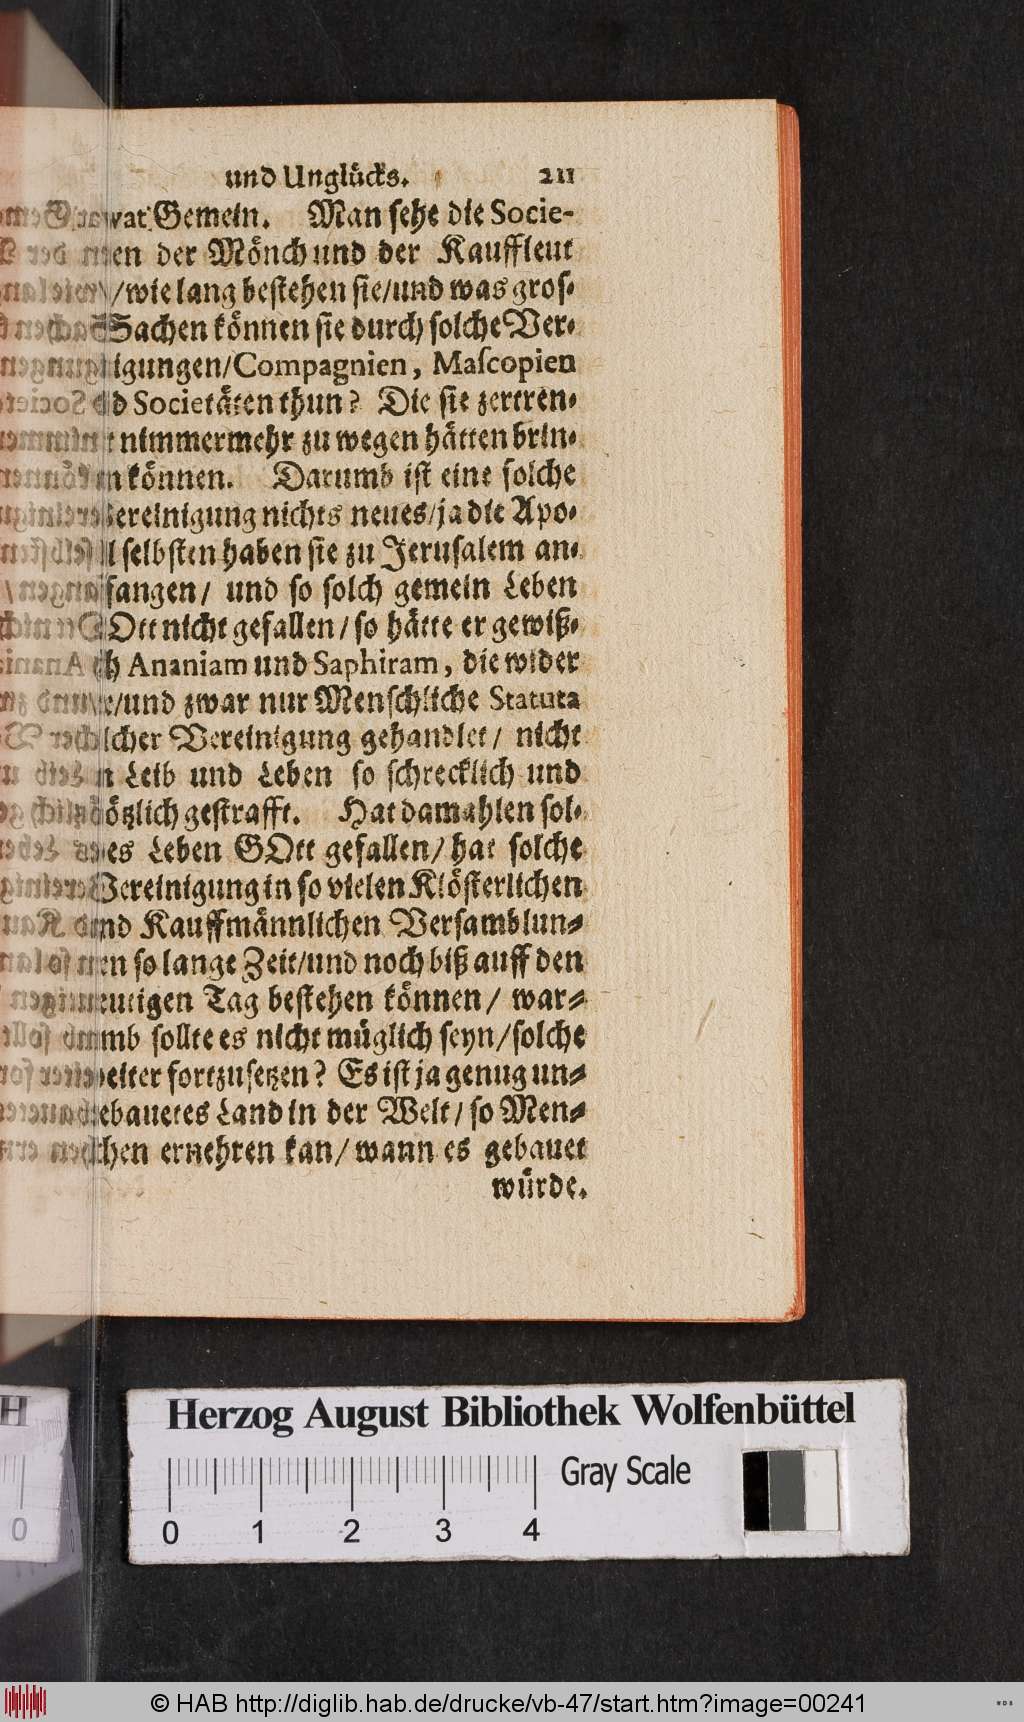 und Unglücks. 211
Gemein. Man sehe die Socie-
der Mönch und der Kauffleut
/wie lang bestehen sie/und was gros-
Sachen können sie durch solche Ver-
igungen/Compagnien, Mascopien
Societäten thun? Die sie zertren-
nimmermehr zu wegen hätten brin-
können. Darumb ist eine solche
Vereinigung nichts neues/ja die Apo-
selbsten haben sie zu Jerusalem an-
fangen/ und so solch gemein Leben
GOtt nicht gefallen/so hätte er gewiß-
Ananiam und Saphiram, die wider
/und zwar nur Menschliche Statuta
solcher Vereinigung gehandlet/ nicht
Leib und Leben so schrecklich und
plötzlich gestrafft. Hat damahlen sol-
ches Leben GOtt gefallen/hat solche
Vereinigung in so vielen Klösterlichen
und Kauffmännlichen Versamblun-
gen so lange Zeit/und noch biß auff den
heutigen Tag bestehen können/ war-
umb sollte es nicht müglich seyn/solche
weiter fortzusetzen? Es ist ja genug un-
gebauetes Land in der Welt/so Men-
schen ernehren kan/wann es gebauet
würde.
Herzog August Bibliothek Wolfenbüttel
Gray Scale
0 1 2 3 4
© HAB http://diglib.hab.de/drucke/vb-47/start.htm?image=00241